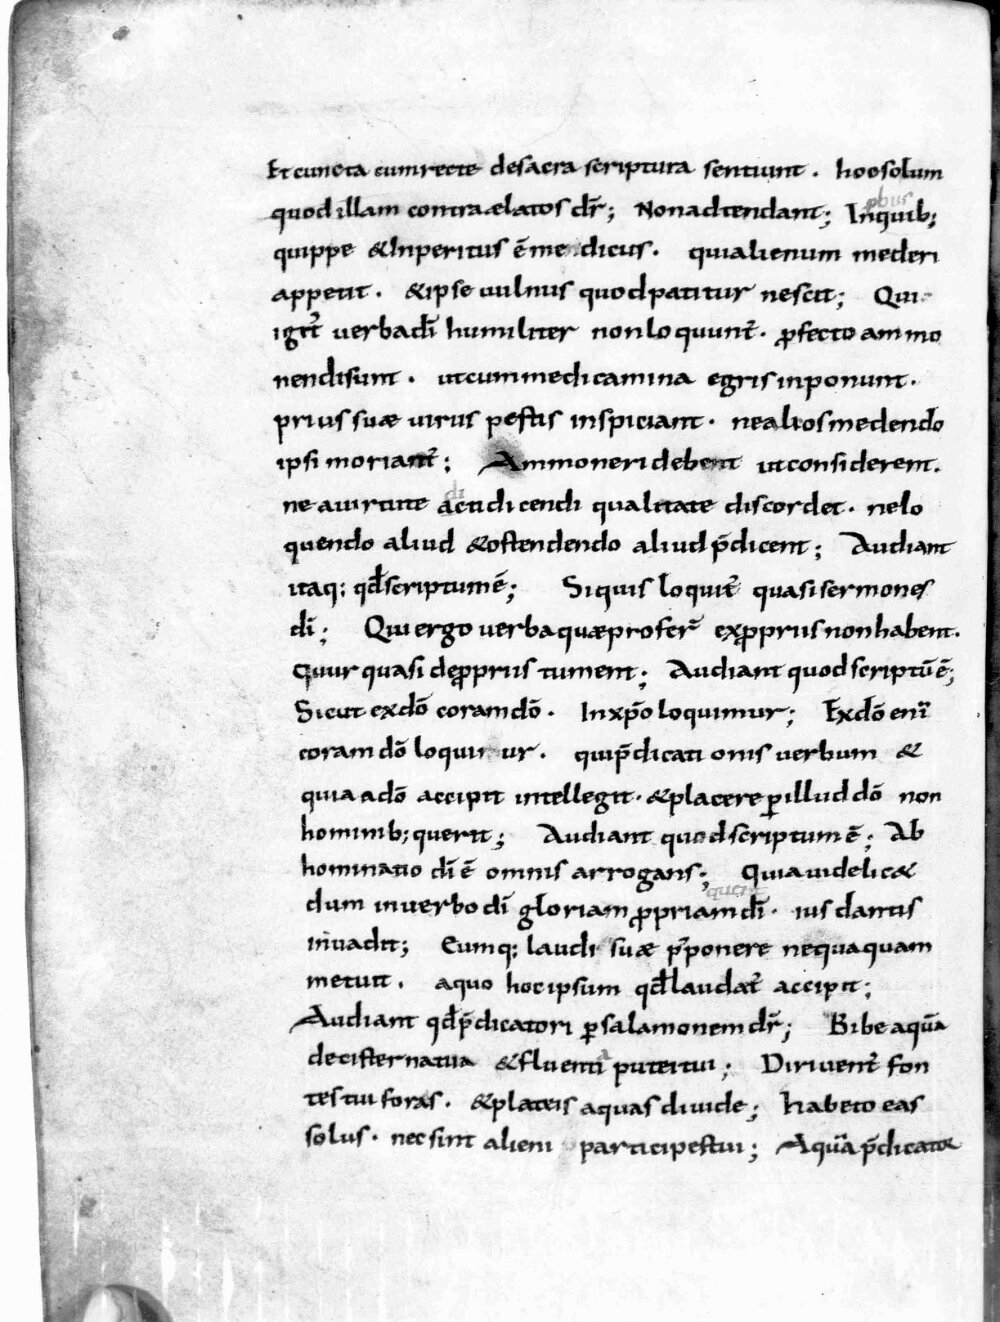 Et cuncta cum recte desacra scriptura sentiunt . hoc solum
quod illam contra elatos dr̄; Non adtendant; In quib;
quippe & Inperitus ē mendicus . qui alienum mederi
appetit . & ipse uulnus quod patitur nescit; Qui
igit̄ uerba dī humiliter non loquunt̄ . ꝓfecto ammo
nendi sunt . ut cum medicamina egris inponunt .
prius suæ uirus pestis inspiciant . ne alios medendo
ipsi moriant̄; Ammoneri debent ut considerent .
ne a uirtute acti dicendi qualitate discordet . ne lo
quendo aliud & ostendendo aliud p̄dicent; Audiant
itaq; qd̄ scriptum ē; Si quis loquit̄ quasi sermones
dī; Qui ergo uerba quæ profer̄ ex ꝓpriis non habent .
Cuur quasi de ꝓpriis tument; Audiant quod scriptū ē;
Sicut ex dō coram dō . In xp̄o loquimur; Ex dō eni
coram dō loquimur . qui p̄dicationis uerbum &
quia a dō accipit intellegit . & placere ꝑ illud dō non
hominib; querit; Audiant quod scriptum ē; Ab
hominatio dī ē omnis arrogans; Quia uidelic&
dum in uerbo dī gloriam ꝓpriam dī . ius dantis
inuadit; Eumq; laudi suæ p̄ponere nequaquam
metuit . a quo hoc ipsum qd̄ laudat̄ accipit;
Audiant qd̄ p̄dicatori ꝑ salamonem dr̄; Bibe aquā
de cisterna tua & fluenta putei tui; Diriuent̄ fon
tes tui foras . & plateis aquas diuide; habeto eas
solus . nec sint alieni participes tui; Aquā p̄dicator